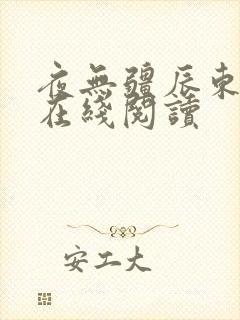 夜無疆辰東
在綫閱讀
安工大